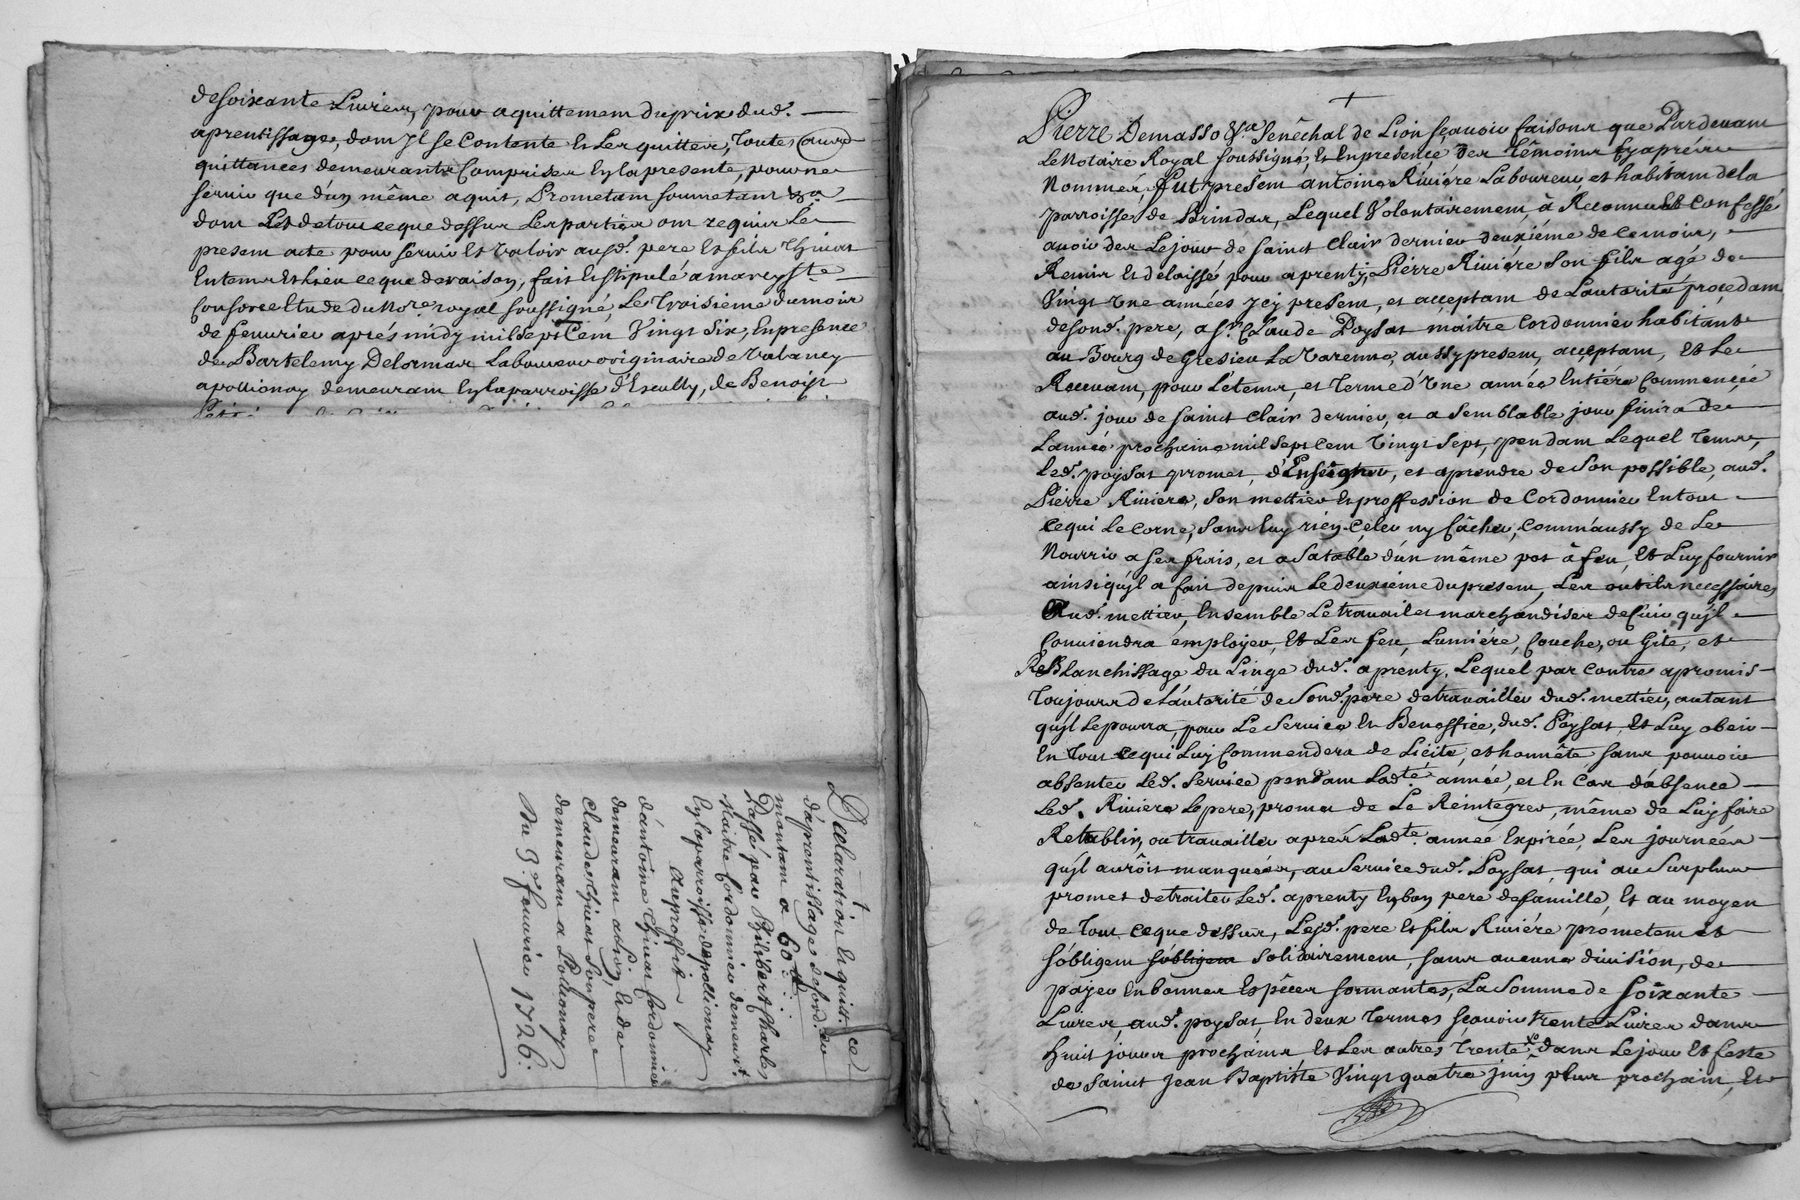 de soixante Livres, pour aquittement du prix dud.
aprentissage, dont Il se contente et les quittes, toutes aures
quittances demeurants Comprises en la presente, pour ne
servir que d'un même aquit, Prometant soumetant &a
dont et de tout ce que dessus les parties ont requis Le
present acte pour servir et valoir ausd. pere et fils Thivas
En tems et Lieu ce que de raison, fait et stipulé a
Consorce Etude du No.re royal soussigné, Le troisieme du mois
de fevurier aprés midy mil sept Cent Vingt six, En presence
de Bartelemy Delormas Laboureur originaire de
apollionay demeurant En la parroisse d'Escully, de Benoist
Declaration et quitt.ce
d'aprentissage de cord.ier
montant a 60 ₶
Passé par Philibert Charles
Maitre Cordonnier demeur.t
En la parroisse de pollionay
Au proffit
d'antoine Thivas Cordonnier
demeurant aud. et de
Claude Thivas son pere
demeurant a Pollionay
Du 3.e fevurier 1726.
Pierre Demasso &a Senêchal de Lion sçavoir faisons que Pardevant
Le Notaire Royal soussigné, et En presence des têmoins Cy aprés
Nommés, Fut present antoine Riviére Laboureur, et habitant de la
parroisse de Brindas, Lequel Volontairement, à Reconnu et Confessé
avoir des Le jour de saint Clair dernier deuxiéme de ce mois,
Remis et delaissé pour aprenty, Pierre Riviére son fils agé de
Vingt une années icy present, et acceptant de L'autorité procedant
de sond. pere, a s.r Claude Poysat maitre Cordonnier habitant
au Bourg de Gresieu La Varenne, aussy present, acceptant, et Le
Recevant, pour L'etems, et terme d'Une année Entiére Commencée
aud. jour de saint Clair dernier, et a semblable jour finira de
L'année prochaine mil sept cent Vingt sept, pendant Lequel tems,
Led. poysat promet, d'Enseigner, et aprendre de son possible, aud.
Pierre Riviere, son mettier et proffession de Cordonnier En tout
ce qui Le Corne, sans Luy rien Céler ny Câcher, comm'aussy de Le
Nourrir a ses frais, et a sa table d'un même pot â feu, et Luy fournir
ainsi qu'il a fait depuis Le deuxiéme du present, Les outils necessaires
Aud. mettier, Ensemble Le travail et marchandises de Cuir qu'il
Conviendra employer, et Les feu, Lumiére, Couche, ou Gite, et
ReBlanchissage du Linge dud. aprenty, Lequel par contre a promis
toujours de L'autorité de sond. pere de travailler dud. mettier, autant
qu'il Le pourra, pour Le service et Benefficé, dud. Poysat, et Luy obeir
En tout ce qui Luy Commendera de Licite, et honnête sans pouvoir
absenter Led. service pendant Lad.te année, et en Cas d'absence
Led. Riviere Le pere, promet de Le Reintegrer, même de Luy faire
Retablir, ou travailler aprés Lad.te année Expirée, Les journées
qu'il aurôit manquées, au service dud. Poysat, qui au surplus
promet de traiter Led. aprenty En bon pere de famille, et au moyen
de tout ce que dessus, Lesd. pere et fils Riviére prometent et
s'obligent s'obligent solidairement, sans aucune division, de
payer En bonnes Espéces sonnantes, La somme de soixante
Livres, aud. poysat En deux termes sçavoir trente Livres dans
huit jours prochains, et Les autres trente ₶ dans Le jour et feste
de saint Jean Baptiste Vingt quatre juin plus prochain, et